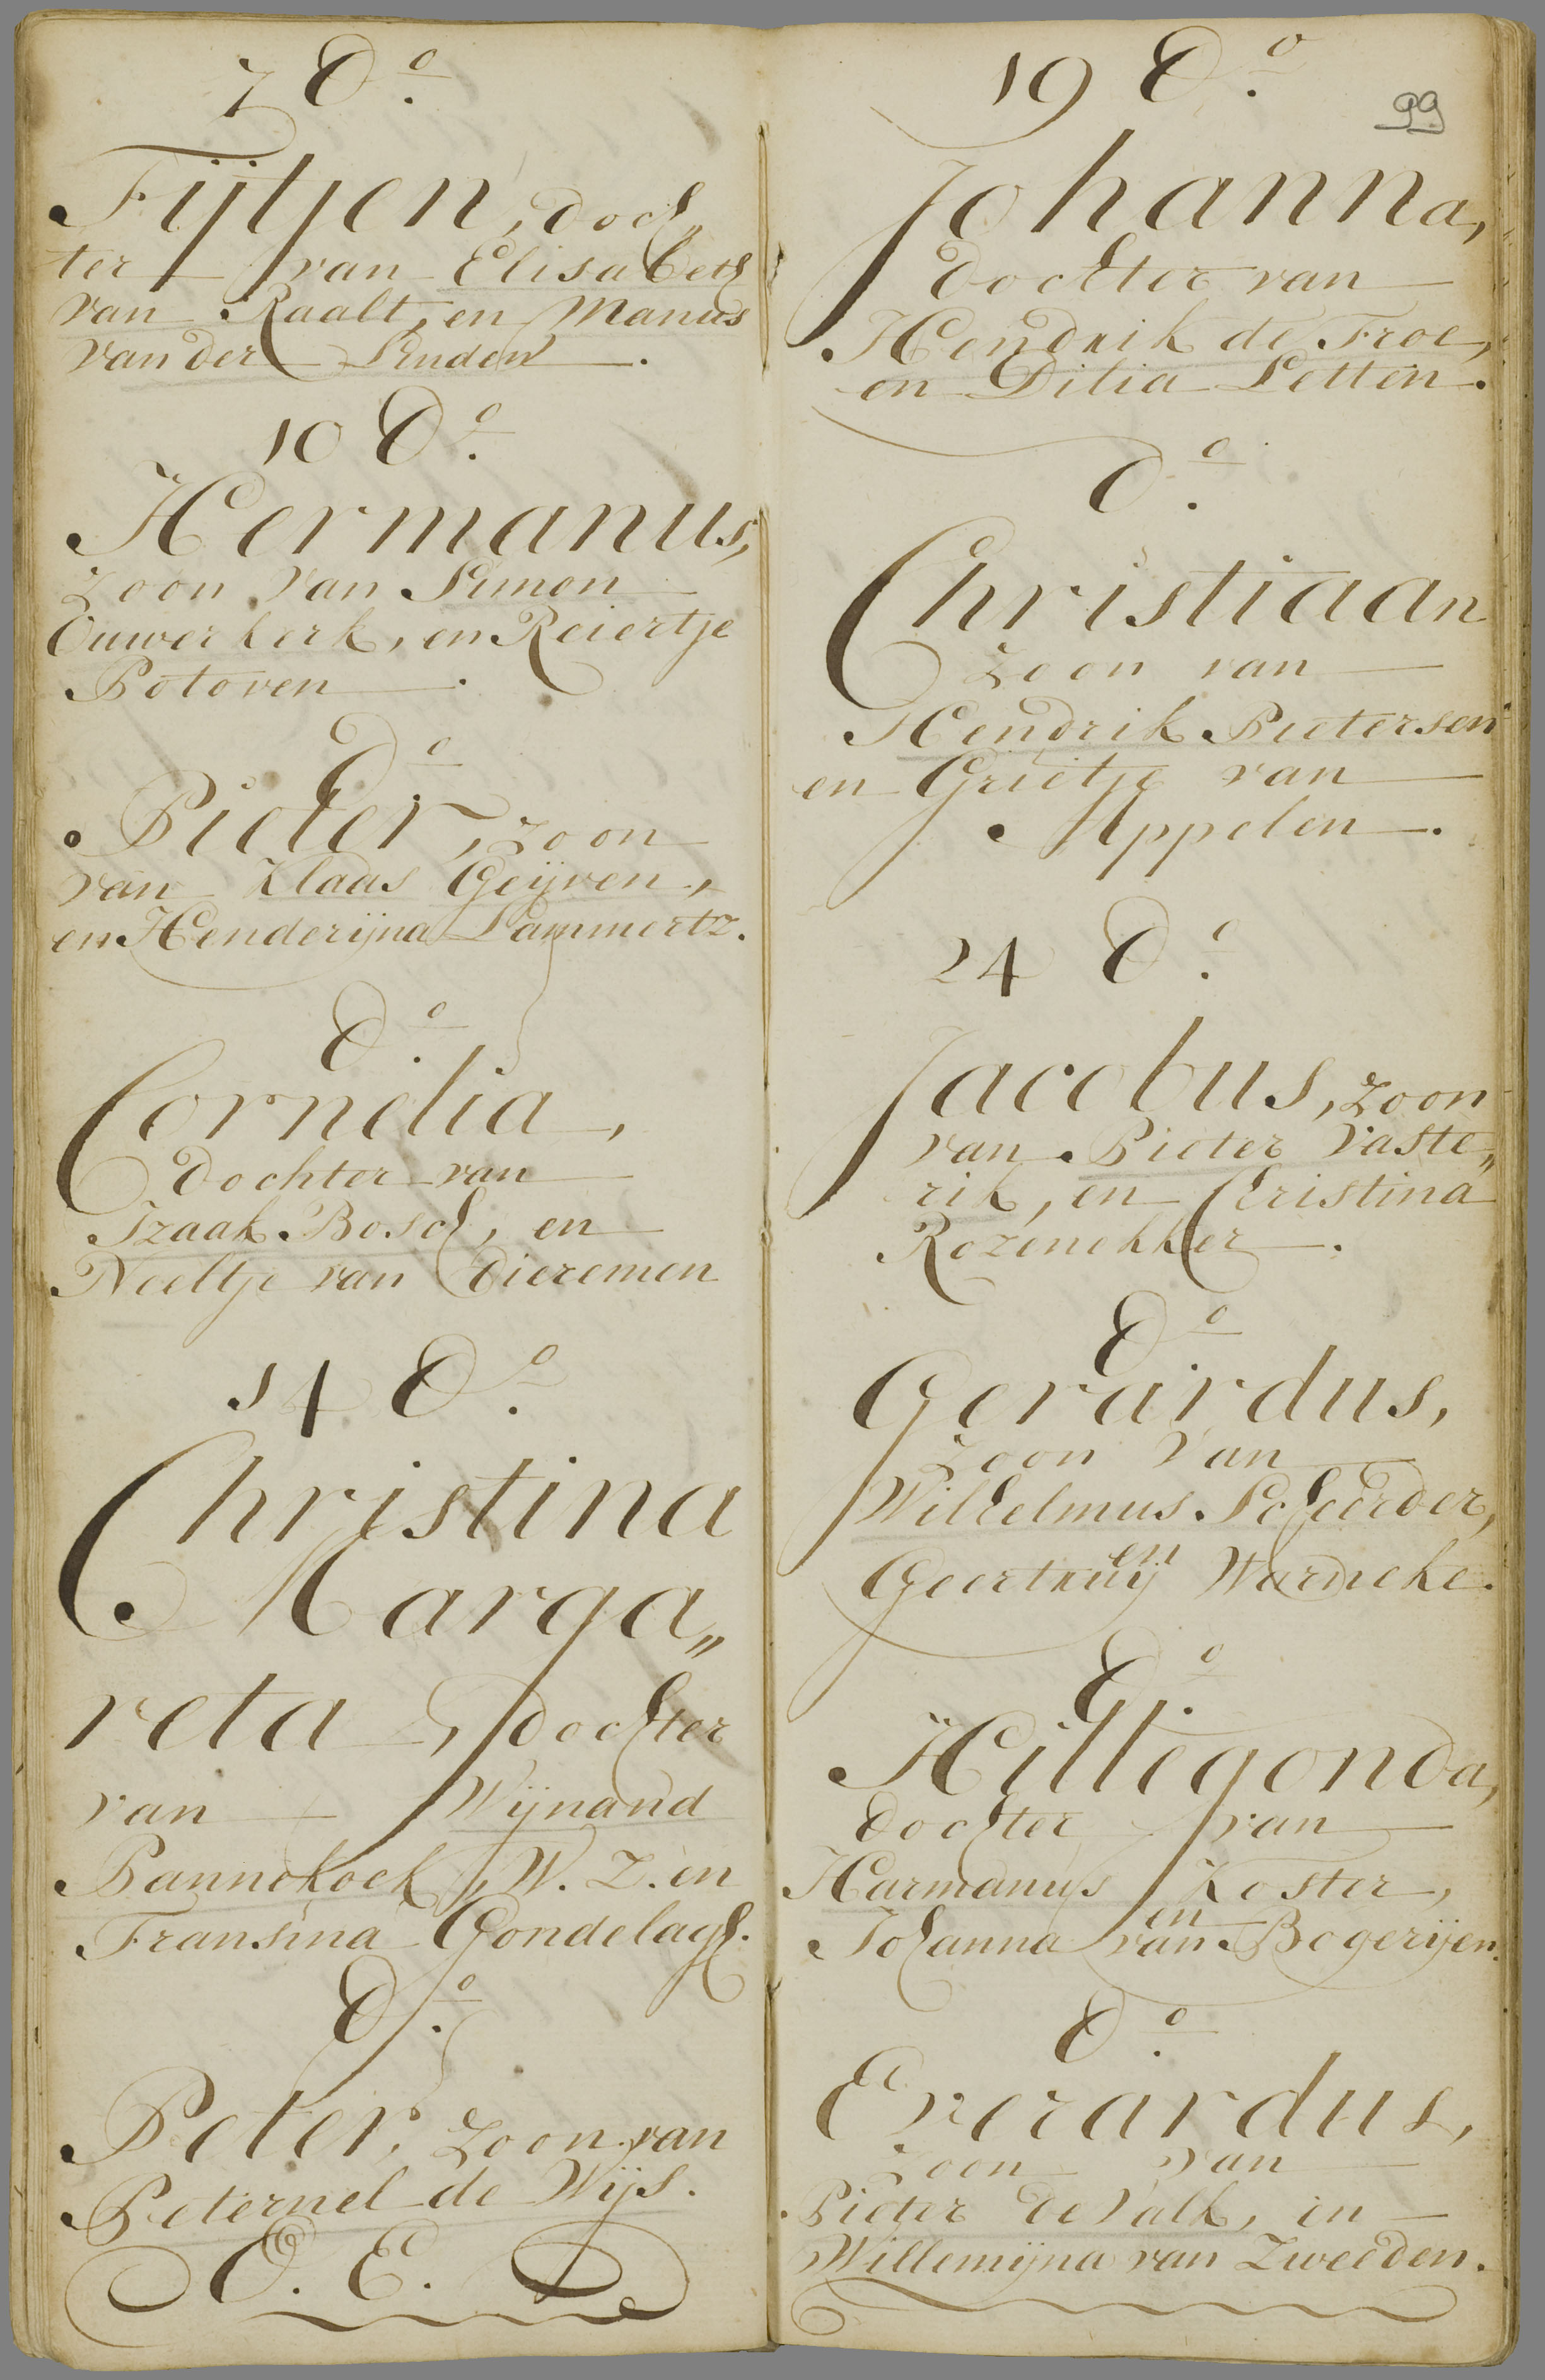 7 Do.
Fijtjen, doch„
ter van Elisabeth
van Raalt, en Manus
van der Linden.
10 Do.
Hermanus,
Zoon van Simon
Ouwerkerk, en Reiertje
Potoven.
Do.
Pieter, zoon
van Klaas Geijven,
en Henderijna Lammertz.
Do.
Cornelia,
Dochter van
Izaak Bosch, en
Neeltje van Dieremen
14 Do.
Christina
Marga„
reta, dochter
van Wijnand
Pannekoek, W. Z. en
Fransina Gondelagh.
Do.
Peter, zoon van
Peternel de Wijs.
O. E.
99
19 Do.
Johanna,
dochter van
Hendrik de Froe,
en Dilia Letten.
Do.
Christiaan
Zoon van
Hendrik Pietersen
en Grietje van
Appelen.
24 Do.
Jacobus, zoon
van Pieter Vaste„
rik, en Christina
Rozenekker.
Do.
Gerardus,
Zoon van
Wilhelmus Scheerder,
en
Geertruij Warneke.
Do.
Hillegonda,
dochter van
Harmanus Koster,
en
Johanna van Bogerijen.
Do.
Everardus,
Zoon van
Pieter de Valk, en
Willemijna van Zweeden.